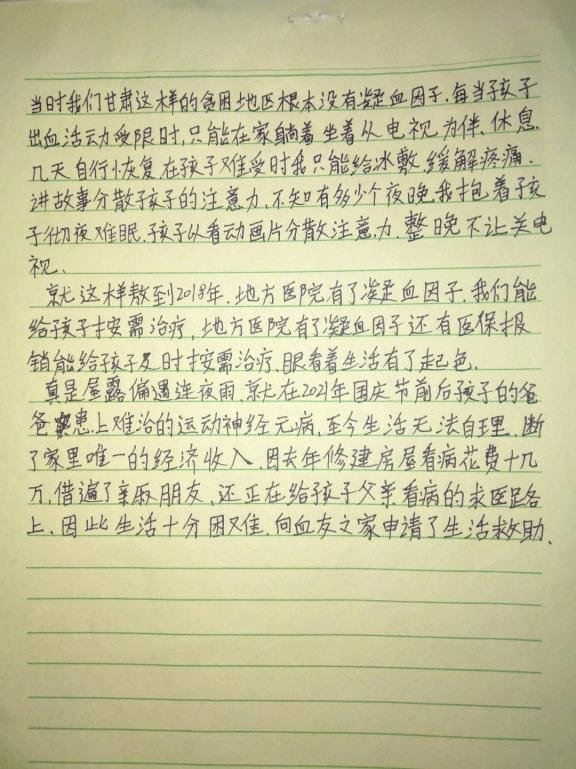 当时我们甘肃这样的贫困地区根本没有凝血因子.每当孩子
出血活动受限时,只能在家躺着坐着从电视为伴、休息
几天自行恢复在孩子难受时我只能给冰敷缓解疼痛.
讲故事分散孩子的注意力.不知有多少个夜晚.我抱着子孩
子彻夜难眠.孩子从看动画片分散注意力.整晚不让关电
视、
就这样熬到2018年.地方医院有了凝血因子.我们能
给孩子按需治疗,地方医院有了凝血因子还有医保报
销能给孩子及时按需治疗.眼看着生活有了起色.
真是屋露偏遇连夜雨.就在2021年国庆节前后孩子的爸
爸患上难治的运动神经元病、至今生活无法自理.断
了家里唯一的经济收入.因去年修建房屋看病花费十几
万,借遍了亲戚朋友,还正在给孩子父亲看病的求医路
上.因此生活十分困难.向血友之家申请了生活救助、